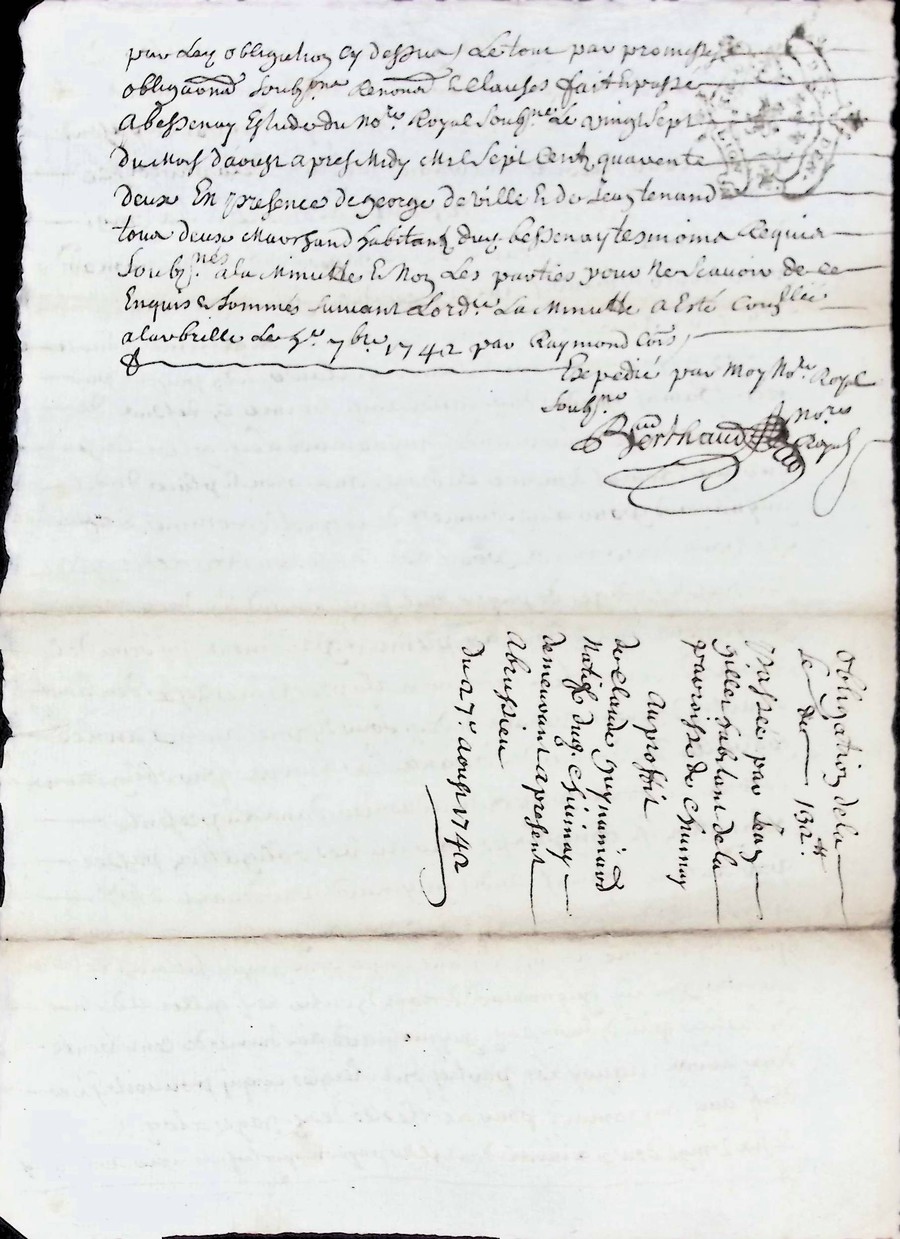 par Ley obligation cy dessus, Le tout par promesse
obligaons Soubzmons Renonaons & Clauses fait & passé
A bessenay Estude du Nore Royal Soubzne Le vingt Sept
Du Mois daoust apres Midy Mil Sept Centz quarente
deux En presence de george deville & de Jean tenand
tous deux Marchand habitans dud. bessenay tesmoins Requis
Soubznes a la Minutte & Non Les parties pour ne Scavoir de ce
Enquis & Sommés suivant Lordce La Minutte a Esté Conllée
a larbrelle Le 7bre 1742 par Raymond Coms
Expedié par Moy Nore Royal
Soubzne
Berthaud Nore
Royal
Obligation de la
Se de 132tt.
Passée par Jean
gilles habitant de la
parroisse de Chevinay
Au proffit
de Claude guynamard
Natif dud. Chevinay
demeurant a present
A brussieu
du 27e aoust 1742